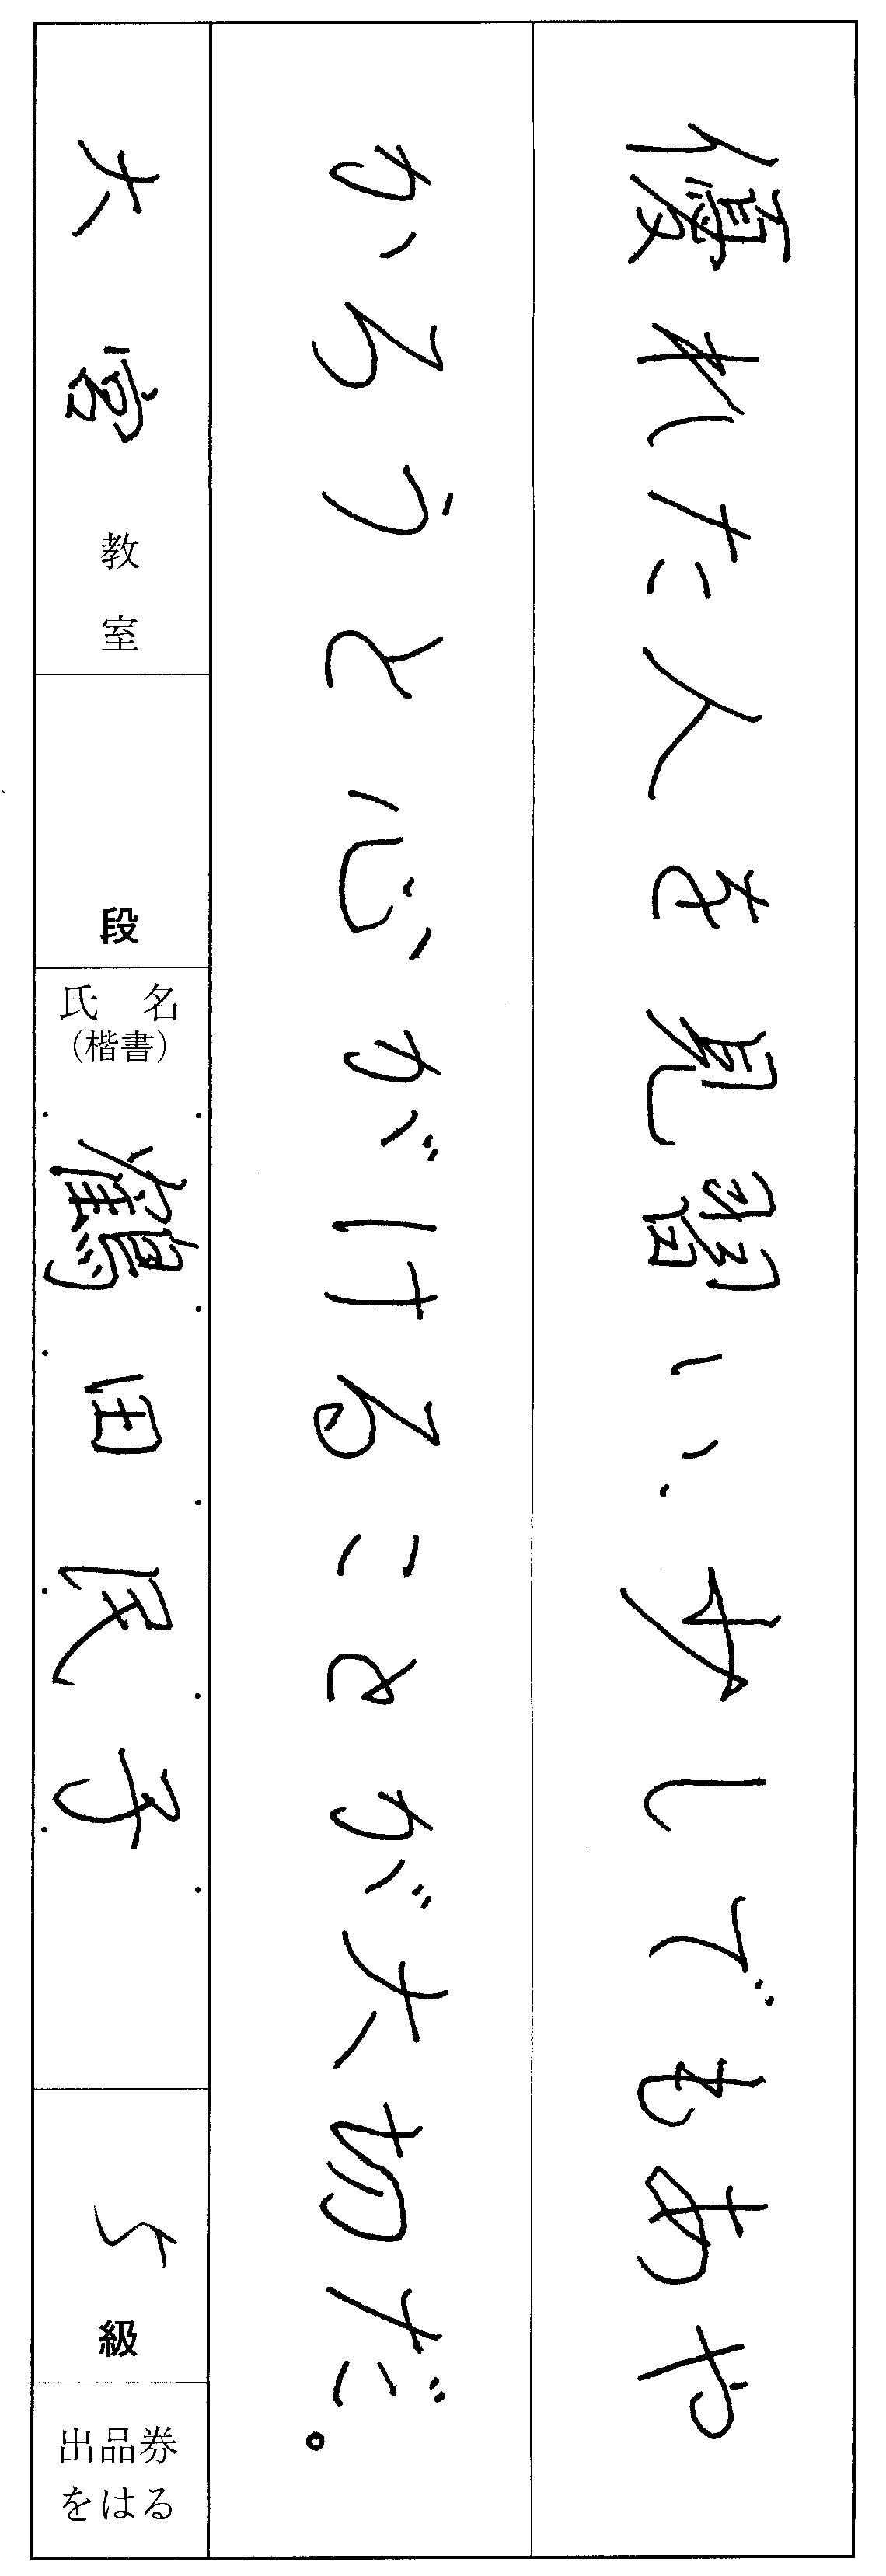 優れた人を見習い、少しでもあや
かろうと心がけることが大切だ。
大宮教室
段
氏名
(楷書)
鶴田民子
5級
出品券
をはる